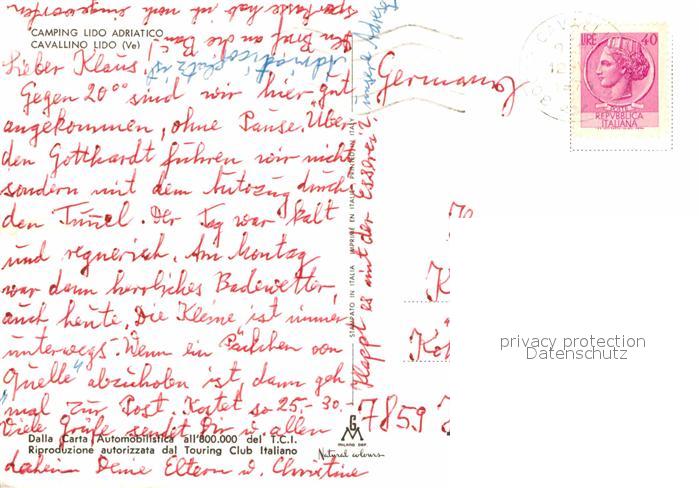 CAMPING LIDO ADRIATICO
CAVALLINO LIDO (Ve)
Lieber Klaus,
Gegen 20⁰⁰ sind wir hier gut
angekommen, ohne Pause. Über
den Gotthardt fuhren wir nicht
sondern mit dem Autozug durch
den Tunnel. Der Tag war kalt
und regnerisch. Am Montag
war dann herrliches Badewetter,
auch heute. Die Kleine ist immer
unterwegs. Wenn ein Päckchen von
"Quelle" abzuholen ist, dann geh
mal zur Post. Kostet so 25,- 30.-
Viele Grüße sendet Dir u. allen
daheim Deine Eltern u. Christine
Klappt es mit der Esserei?
unsere Adresse
Adriatico
ist
Den Brief an die
hab ich noch eingeworfen
Germany
7859
Dalla Carta Automobilistica all'800.000 del T.C.I.
Riproduzione autorizzata dal Touring Club Italiano
STAMPATO IN ITALIA IMPRIMÉ EN ITALIE PRINTED IN ITALY
MILANO DEP.
Natural colours
CAVALLI
LIRE 40
POSTE
REPVBBLICA
ITALIANA
privacy protection
Datenschutz